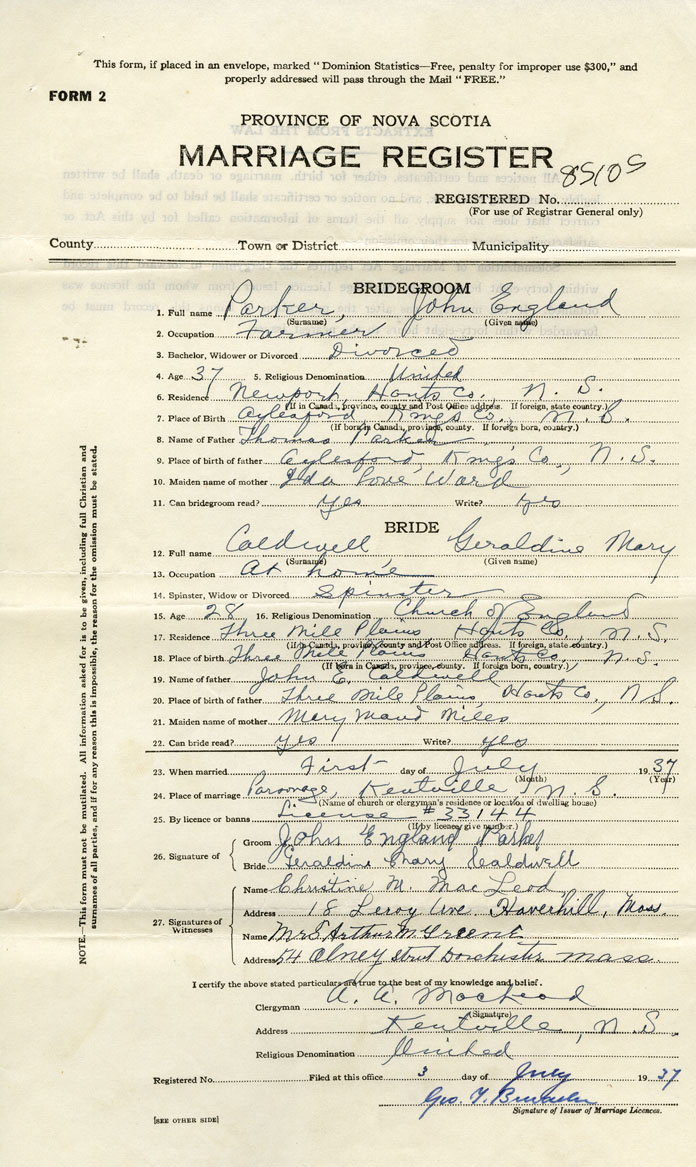 This form, if placed in an envelope, marked "Dominion Statistics—Free, penalty for improper use $300," and
properly addressed will pass through the Mail "FREE."
FORM 2
PROVINCE OF NOVA SCOTIA
MARRIAGE REGISTER
REGISTERED No. 85105
(For use of Registrar General only)
County Town or District Municipality
BRIDEGROOM
1. Full name Parker, John England
(Surname) (Given name)
2. Occupation Farmer
3. Bachelor, Widower or Divorced Divorced
4. Age 37 5. Religious Denomination United
6. Residence Newport, Hants Co., N. S.
(If in Canada, province, county and Post Office address. If foreign, state country.)
7. Place of Birth Aylesford, Kings Co., N. S.
(If born in Canada, province, county. If foreign born, country.)
8. Name of Father Thomas Parker
9. Place of birth of father Aylesford, King's Co., N. S.
10. Maiden name of mother Ida Love Ward
11. Can bridegroom read? yes Write? yes
BRIDE
12. Full name Caldwell Geraldine Mary
(Surname) (Given name)
13. Occupation At home
14. Spinster, Widow or Divorced Spinster
15. Age 28 16. Religious Denomination Church of England
17. Residence Three Mile Plains Hants Co., N. S.
(If in Canada, province, county and Post Office address. If foreign, state country.)
18. Place of birth Three Mile Plains Hants Co., N. S.
(If born in Canada, province, county. If foreign born, country.)
19. Name of father John E. Caldwell
20. Place of birth of father Three Mile Plains, Hants Co., N. S.
21. Maiden name of mother Mary Maud Miles
22. Can bride read? yes Write? yes
23. When married First day of July 1937
(Month) (Year)
24. Place of marriage Parsonage, Kentville, N. S.
(Name of church or clergyman's residence or location of dwelling house)
25. By licence or banns License #33144
(If by licence, give number.)
26. Signature of
Groom John England Parker
Bride Geraldine Mary Caldwell
27. Signatures of Witnesses
Name Christine M. MacLeod
Address 18 Leroy Ave. Haverhill, Mass.
Name Mrs Arthur M. Greene
Address 54 Olney street Dorchester Mass.
I certify the above stated particulars are true to the best of my knowledge and belief.
Clergyman A. A. MacLeod
(Signature)
Address Kentville, N. S.
Religious Denomination United
Registered No. Filed at this office 3 day of July 1937
Geo. T.
Signature of Issuer of Marriage Licences.
[SEE OTHER SIDE]
NOTE.—This form must not be mutilated. All information asked for is to be given, including full Christian and
surnames of all parties, and if for any reason this is impossible, the reason for the omission must be stated.